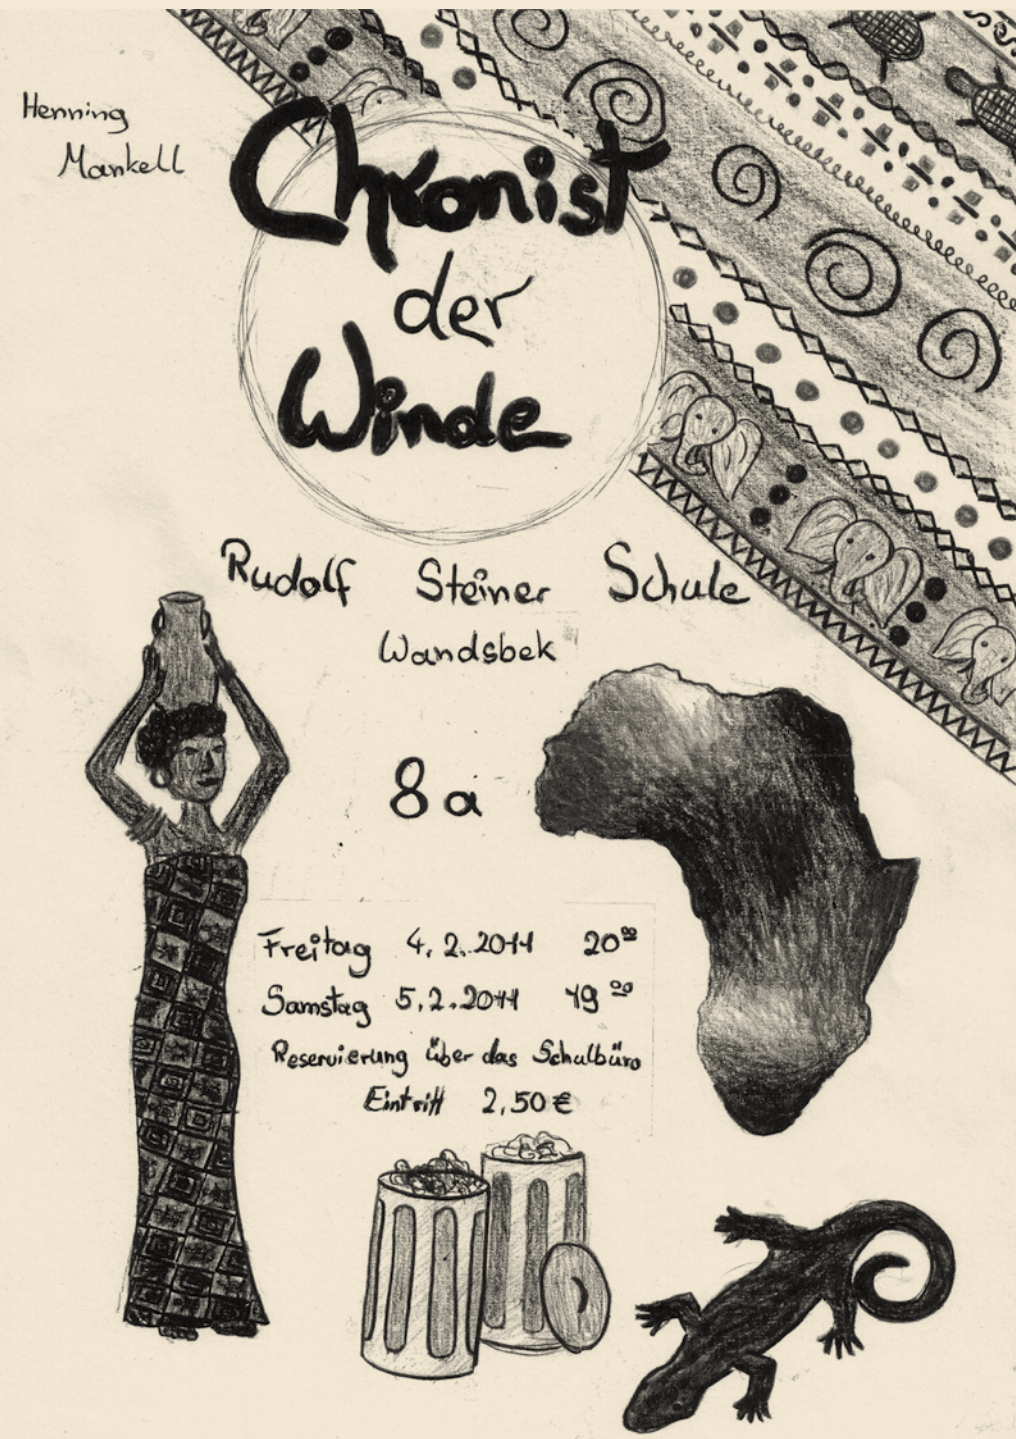 Henning
Mankell
Chronist
der
Winde
Rudolf Steiner Schule
Wandsbek
8a
Freitag 4.2.2011 20⁰⁰
Samstag 5.2.2011 19⁰⁰
Reservierung über das Schulbüro
Eintritt 2,50€